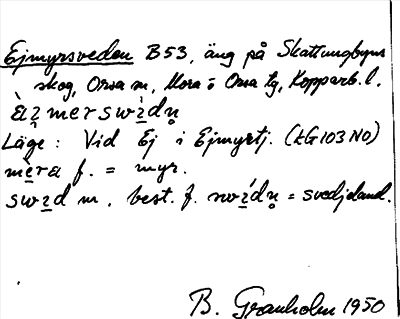 Ejmyrsveden B53, äng på Skattungbyns
skog, Orsa sn, Mora o Orsa tg, Kopparb. l.
Läge: Vid Ej i Ejmyrtj. (LG103 NO)
f. = myr.
m. best. f. = svedjeland.
B. Granholm 1950